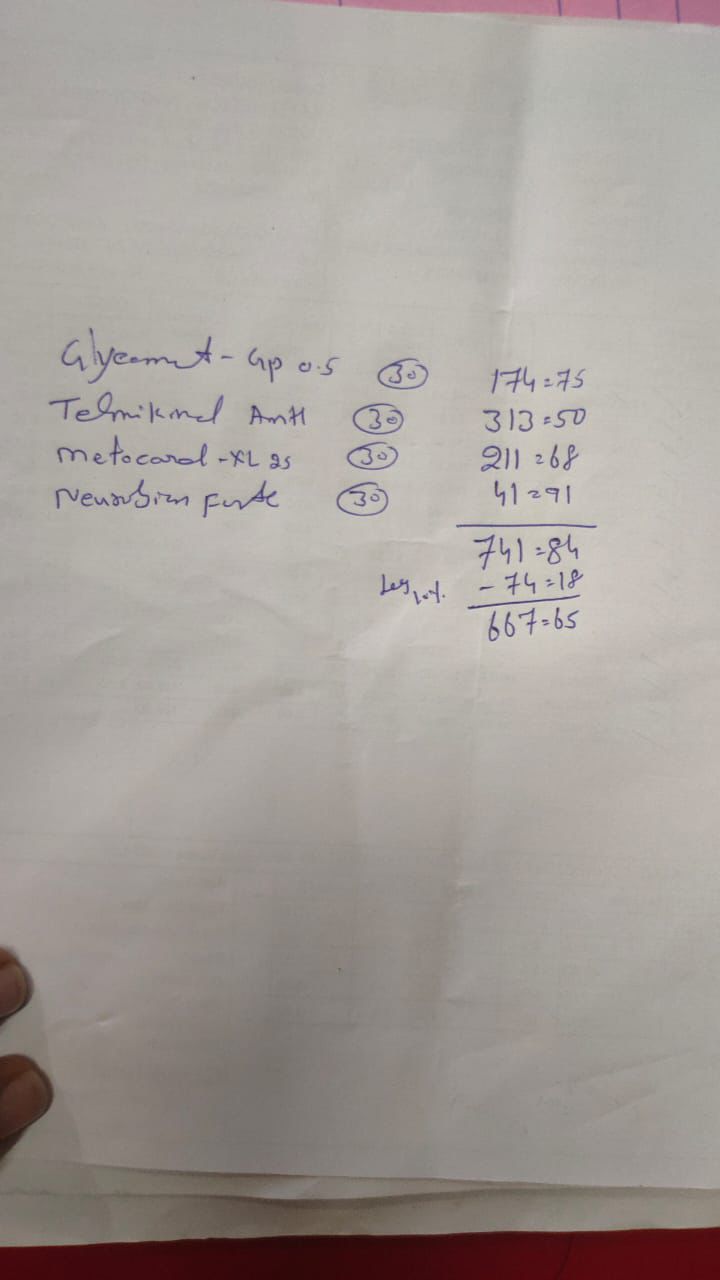 Glycomet-Gp 0.5 (30) 174=75
Telmikind AmH (30) 313=50
Metocard-XL 25 (30) 211=68
Neurobion Forte (30) 41=91
741=84
Less 10%. -74=18
667=65